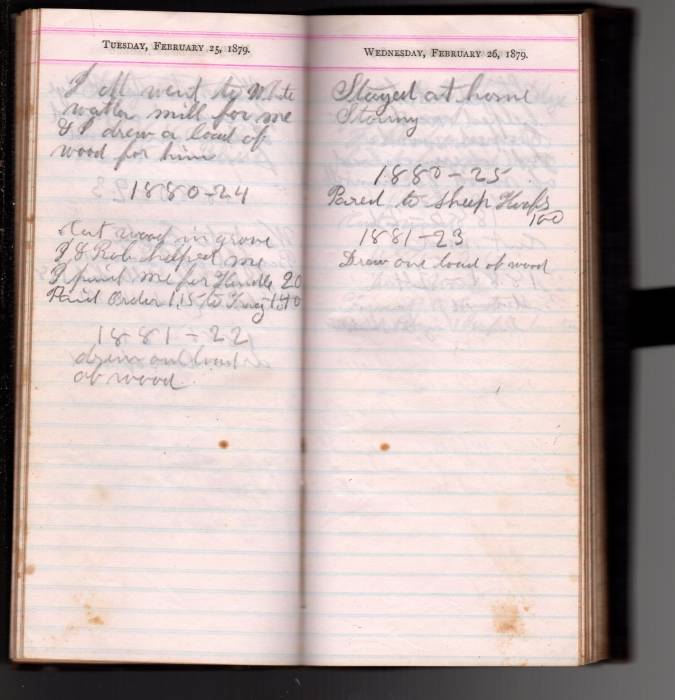 TUESDAY, FEBRUARY 25, 1879.
went to White
watter mill for me
& I drew a load of
wood for him
1880-24
wood in grove
J & Rob helped me
me for Handle 20
Paid Order 1.15 to
1881-22
drew one load
of wood
WEDNESDAY, FEBRUARY 26, 1879.
Stayed at home
Stormy
1880-25
Pared to Sheep Hoofs
100
1881-23
Drew one load of wood